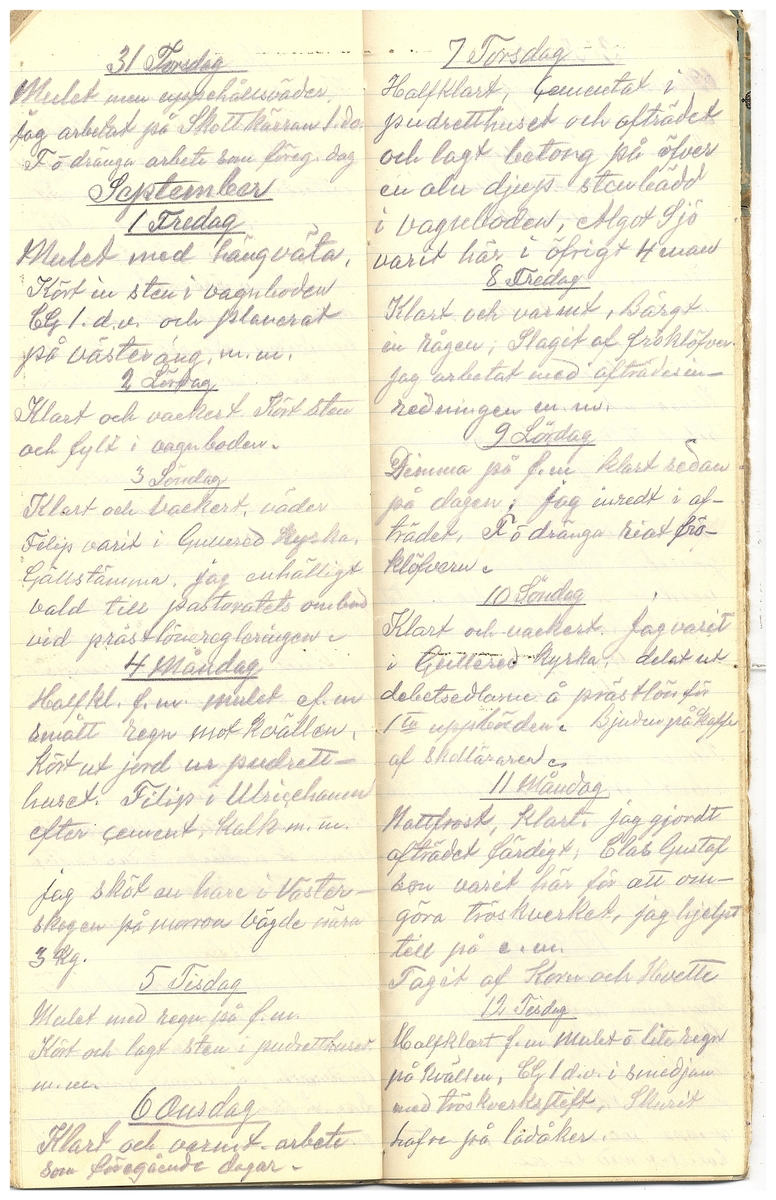 31 Torsdag
Mulet men uppehållsväder.
jag arbetat på Skottkärran 1. do.
F ö dränga arbete som föreg. dag
September
1 Fredag
Mulet med hängväta,
Kört in sten i vagnboden
CG 1. d.v. och planerat
på västeräng. m. m.
2 Lördag
Klart och vackert. Kört sten
och fylt i vagnboden.
3 Söndag
Klart och vackert, väder
Filip varit i Gullered Kyrka,
Gällstämma, jag enhälligt
vald till pastoratets ombud
vid prästlöneregleringen.
4 Måndag
Halfkl. f. m. mulet e. m
smått regn mot kvällen,
Kört ut jord ur pudrett-
huset. Filip i Ulricehamn
efter cement, kalk m. m.
jag sköt en hare i Väster-
skogen på morron vägde nära
3 Kg.
5 Tisdag
Mulet med regn på f. m.
Kört och lagt sten i pudretthuset
m. m.
6 Onsdag
Klart och varmt. arbete
som föregående dagar.
7 Torsdag
Halfklart, cementat i
pudretthuset och afträdet
och lagt betong på öfver
en aln djup stenbädd
i vagnboden, Algot Sjö
varit här i öfrigt 4 man
8 Fredag
Klart och varmt, Bärgt
in rågen, Slagit af fröklöfver.
jag arbetat med afträdesin-
redningen m. m.
9 Lördag
Dimma på f. m klart sedan
på dagen; jag inredt i af-
trädet, F ö dränga hiat frö-
klöfvern.
10 Söndag
Klart och vackert. Jag varit
i Gullered Kyrka, delat ut
debetsedlarne å prästlön för
1 ta uppbörden. Bjuden på Kaffe
af Skolläraren
11 Måndag
Nattfrost, Klart, jag gjordt
afträdet färdigt; Clas Gustaf
son varit här för att om-
göra tröskverket, jag hjelpt
till på e. m.
Tagit af Korn och Hvete
12 Tisdag
Halfklart f. m mulet ö lite regn
på kvällen, CG 1 d.v. i smedjan
med tröskverksstift, Skurit
hafre på lidåker.